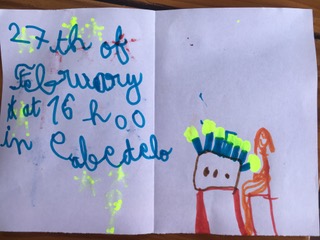 27th of
February
at 16 h 00
in Cabedelo